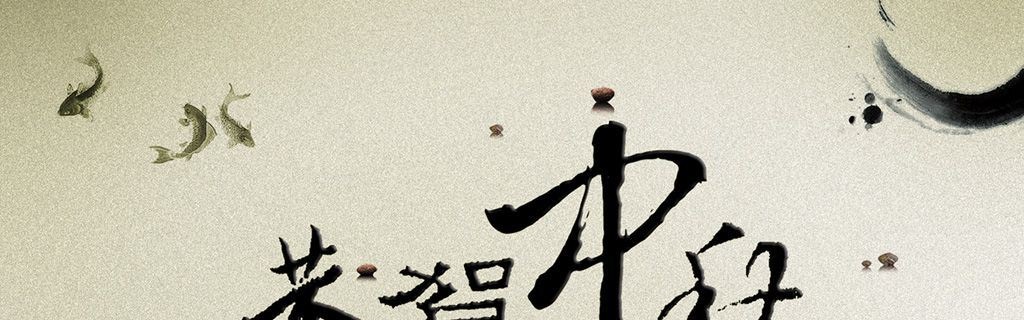 恭贺中秋